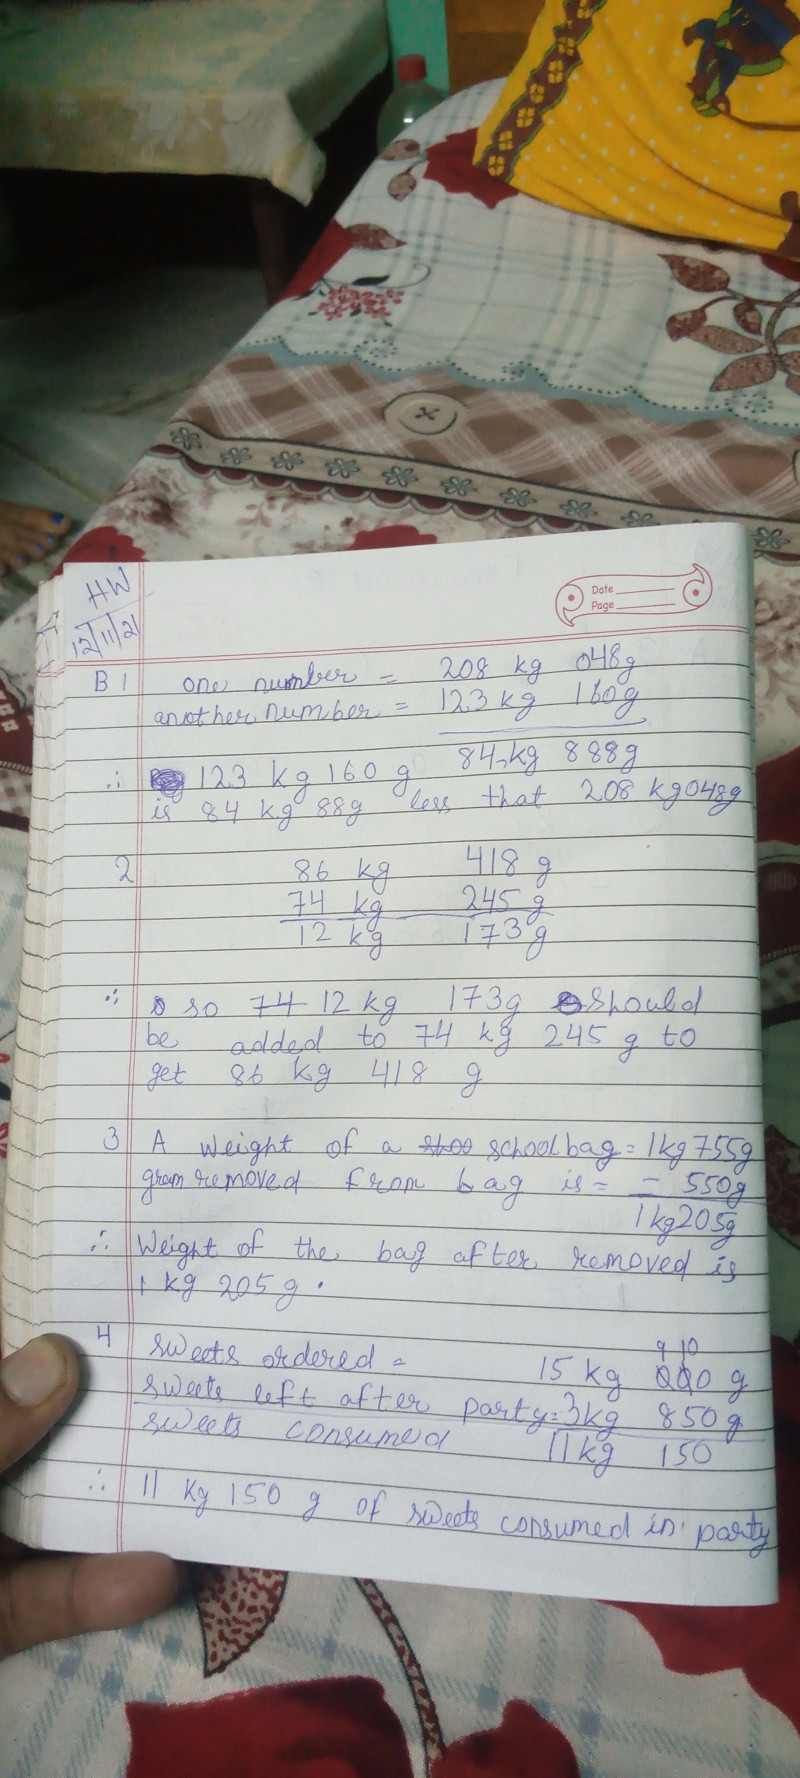 HW
12/11/21
Date
Page
B 1 one number = 208 kg 048g
another number = 123 kg 160g
84 kg 888g
∴ 123 kg 160 g
is 84 kg 88g less that 208 kg 048g
2 86 kg 418 g
74 kg 245 g
12 kg 173 g
∴ so 74 12 kg 173g should
be added to 74 kg 245 g to
get 86 kg 418 g
3 A weight of a shoo school bag = 1kg 755g
gram removed from bag is = - 550g
1kg205g
∴ Weight of the bag after removed is
1 kg 205 g.
9 10
4 sweets ordered = 15 kg 000 g
sweets left after party = 3kg 850 g
sweets consumed 11kg 150
∴ 11 kg 150 g of sweets consumed in party